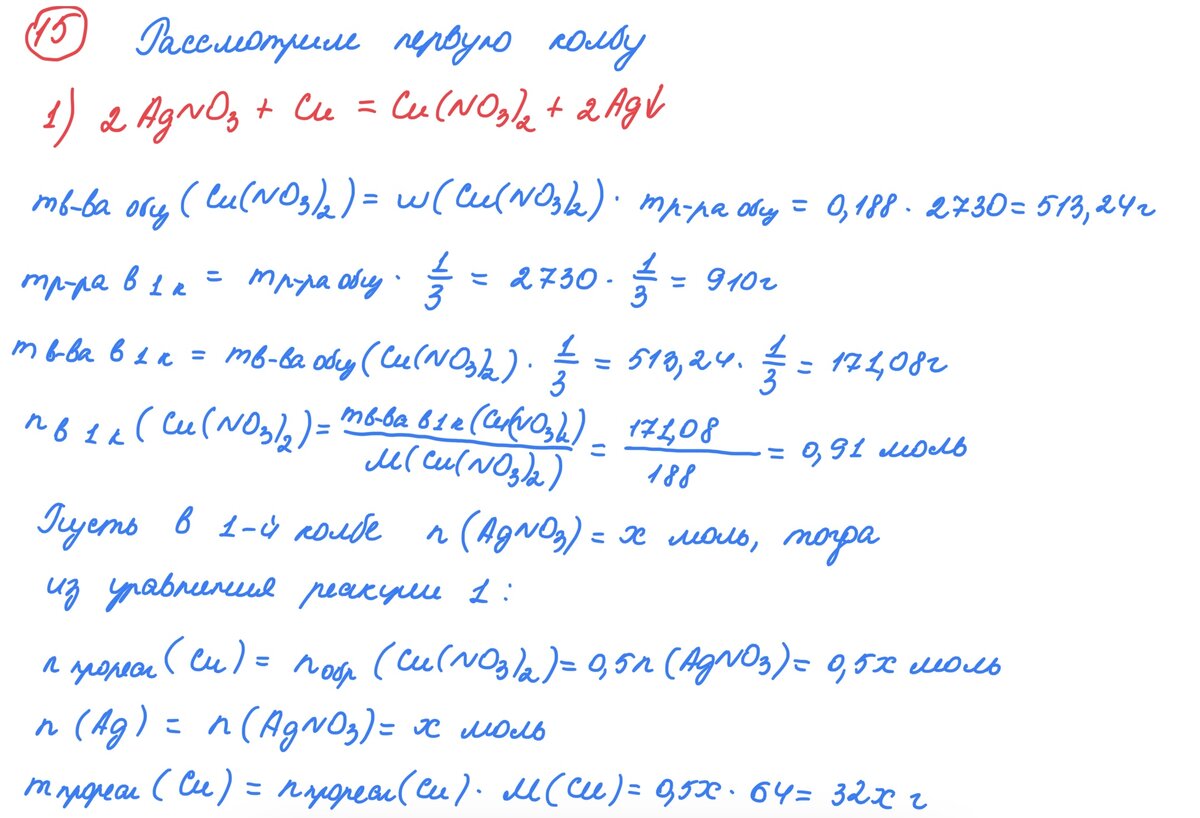 15 Рассмотрим первую колбу
1) 2AgNO₃ + Cu = Cu(NO₃)₂ + 2Ag↓
mв-ва общ (Cu(NO₃)₂) = w(Cu(NO₃)₂) · mр-ра общ = 0,188 · 2730 = 513,24 г
mр-ра в 1 к = mр-ра общ · 1/3 = 2730 · 1/3 = 910 г
mв-ва в 1 к = mв-ва общ (Cu(NO₃)₂) · 1/3 = 513,24 · 1/3 = 171,08 г
nв 1 к (Cu(NO₃)₂) = mв-ва в 1 к (Cu(NO₃)₂) / M(Cu(NO₃)₂) = 171,08 / 188 = 0,91 моль
Пусть в 1-й колбе n(AgNO₃) = x моль, тогда
из уравнения реакции 1:
nпрореаг (Cu) = nобр (Cu(NO₃)₂) = 0,5n(AgNO₃) = 0,5x моль
n(Ag) = n(AgNO₃) = x моль
mпрореаг (Cu) = nпрореаг (Cu) · M(Cu) = 0,5x · 64 = 32x г